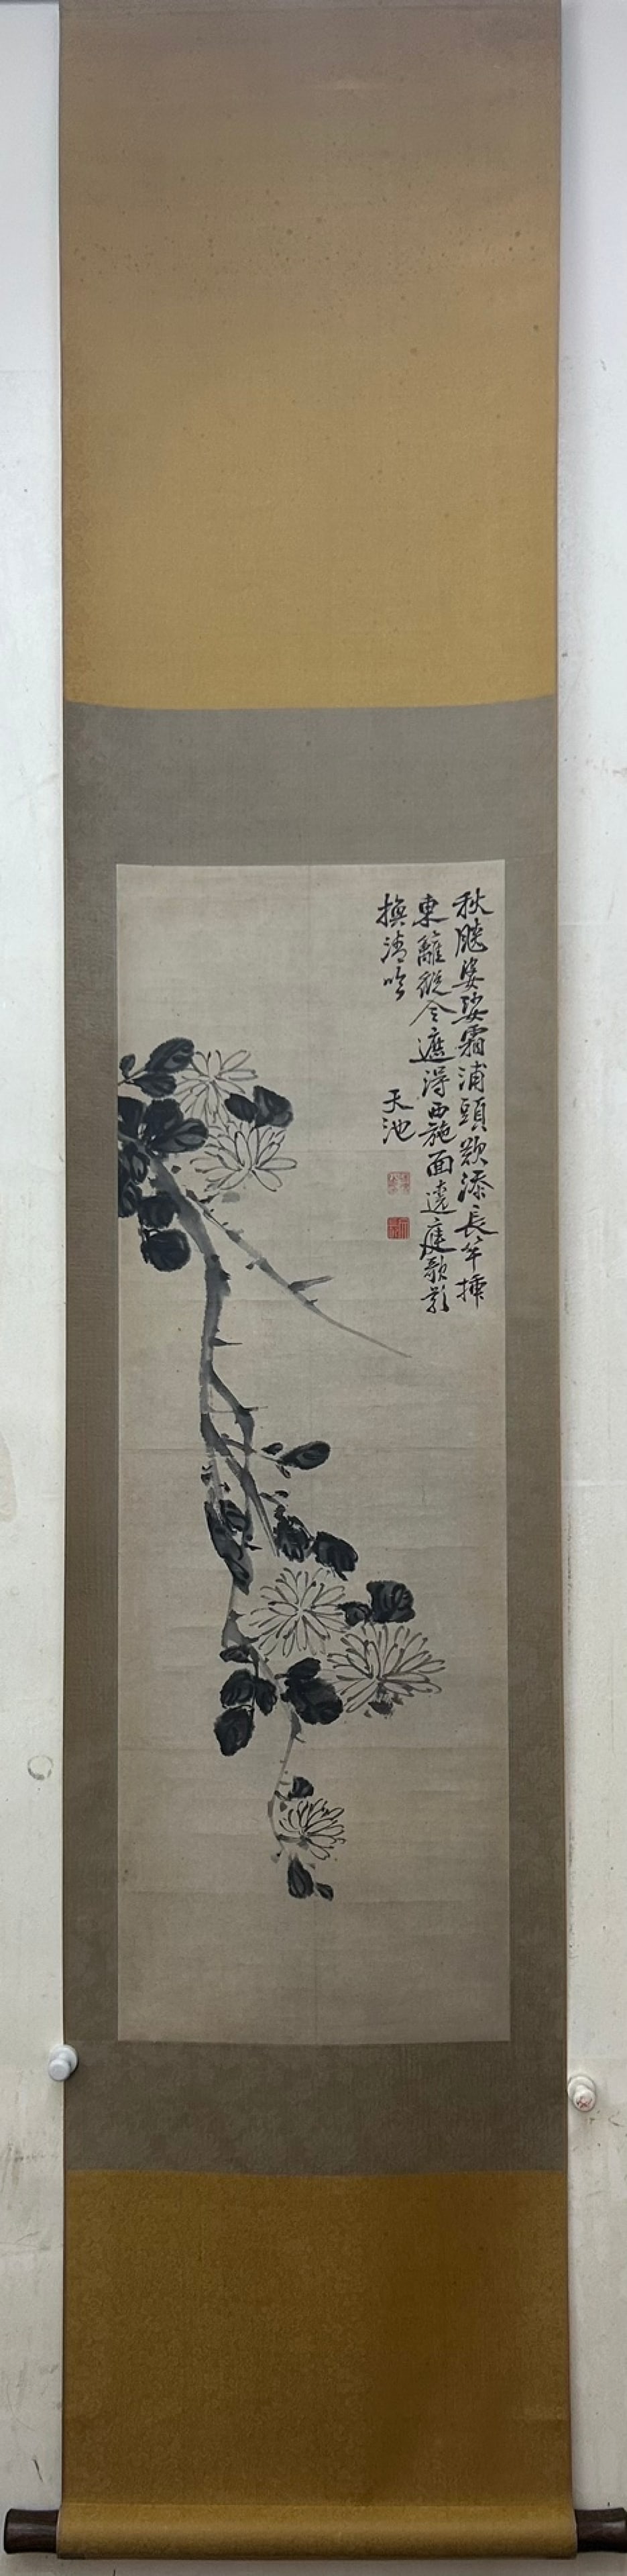 秋婆娑霜浦頭添長竿
東籬縱令遮得西施面遶庭歌影
換清吟
天池